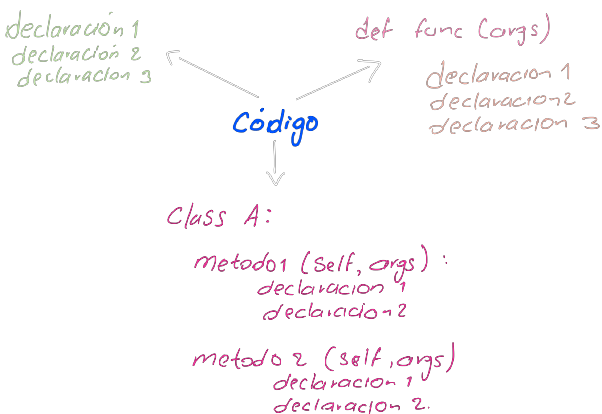 declaración 1
declaración 2
declaracion 3
def func (args)
declaracion 1
declaracion 2
declaracion 3
Código
Class A:
metodo1 (Self, args) :
declaracion 1
declaracion 2
metodo 2 (Self, args)
declaracion 1
declaracion 2.